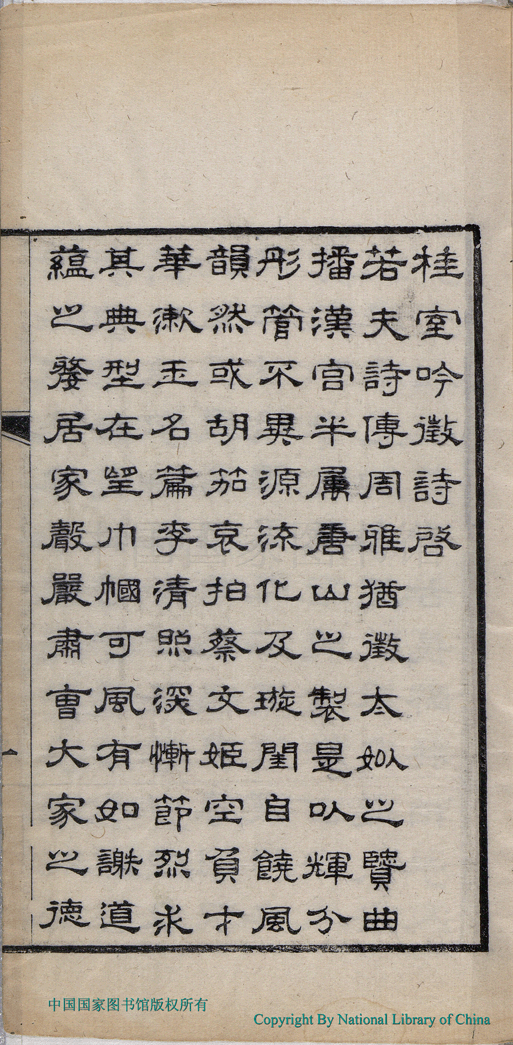 桂室吟徵詩啓
若夫詩傳周雅猶徵太姒之賢曲
播漢宮半屬唐山之製是以輝分
彤管不異源流化及璇閨自饒風
韻然或胡笳哀拍蔡文姬空負才
華漱玉名篇李清照深慚節烈求
其典型在望巾幗可風有如謝道
蘊之發居家聲嚴肅曹大家之德
一
中国国家图书馆版权所有
Copyright By National Library of China